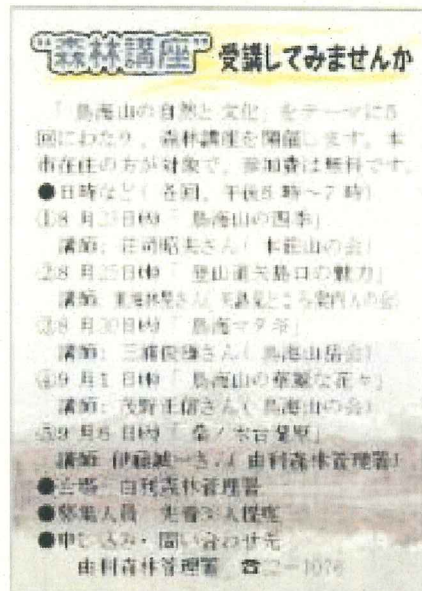 "森林講座" 受講してみませんか
「鳥海山の自然と文化」をテーマに5
回にわたり、森林講座を開催します。本
市在住の方が対象で、参加費は無料です。
●日時など(各回、午後 時~7時)
①8月23日㈫「鳥海山の四季」
講師:荘司昭夫さん(本荘山の会)
②8月25日㈭「登山道矢島口の魅力」
講師:
③8月30日㈫「鳥海マタギ」
講師:三浦俊雄さん(鳥海山岳会)
④9月1日㈭「鳥海山の華麗な花々」
講師:茂野正信さん(鳥海山の会)
⑤9月6日㈫「桑ノ木台湿原」
講師:伊藤誠一さん(由利森林管理署)
●会場 由利森林管理署
●募集人員 先着 人程度
●申し込み・問い合わせ先
由利森林管理署 ☎22-1076